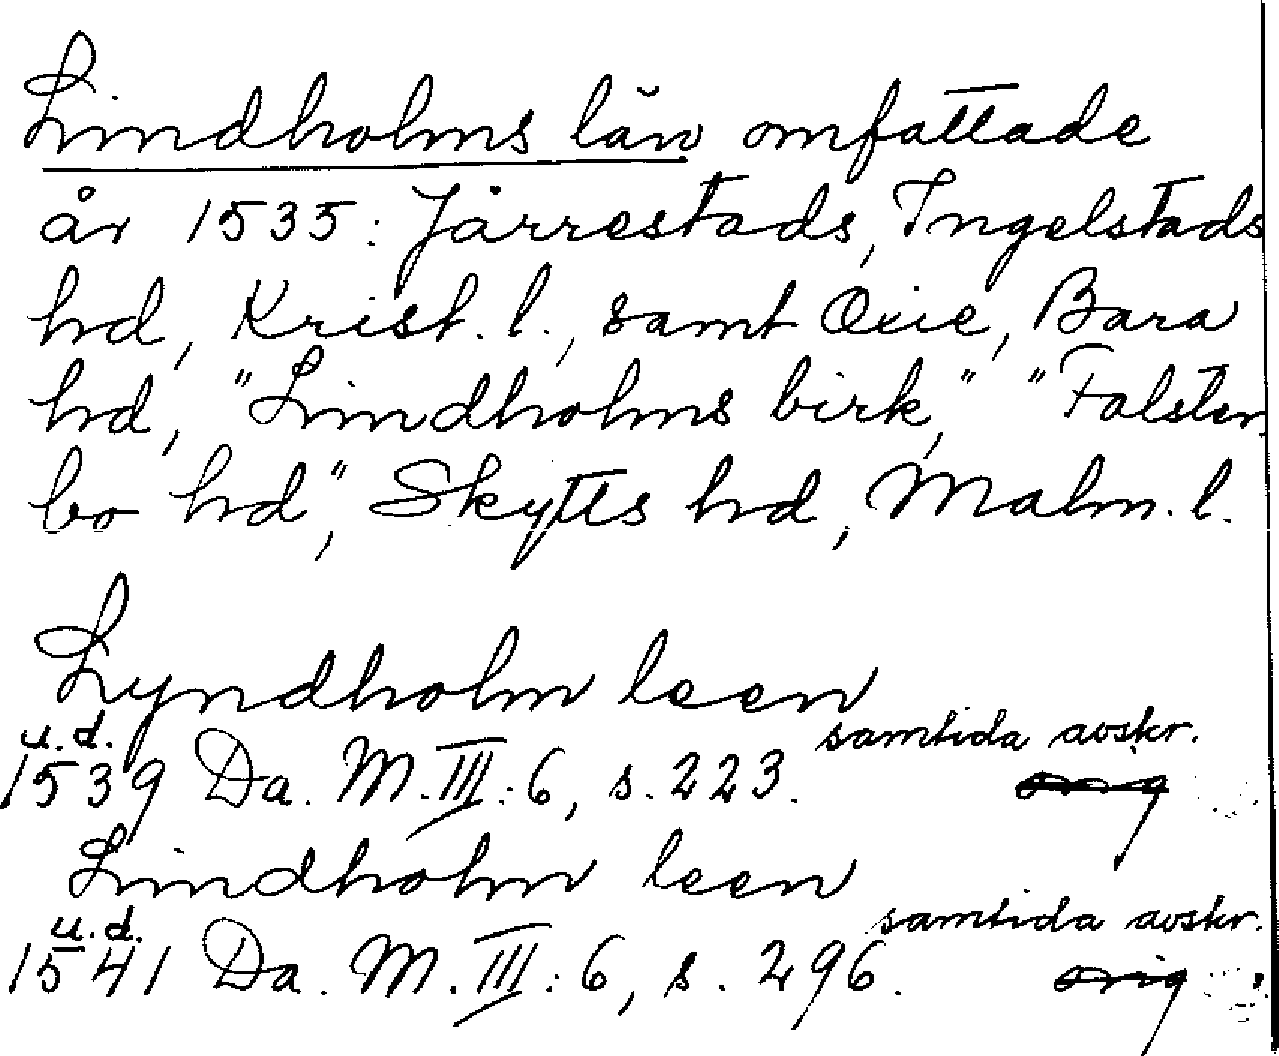 Lindholms län omfattade
år 1535: Järrestads, Ingelstads
hd, Krist. l., samt Oxie, Bara
hd, "Lindholms birk," "Falster
bo hd", Skytts hd, Malm. l.
Lyndholm leen
u.d. samtida avskr.
1539 Da. M. III: 6, s. 223. orig
Lindholm leen
u.d. samtida avskr.
1541 Da. M. III: 6, s. 296. orig